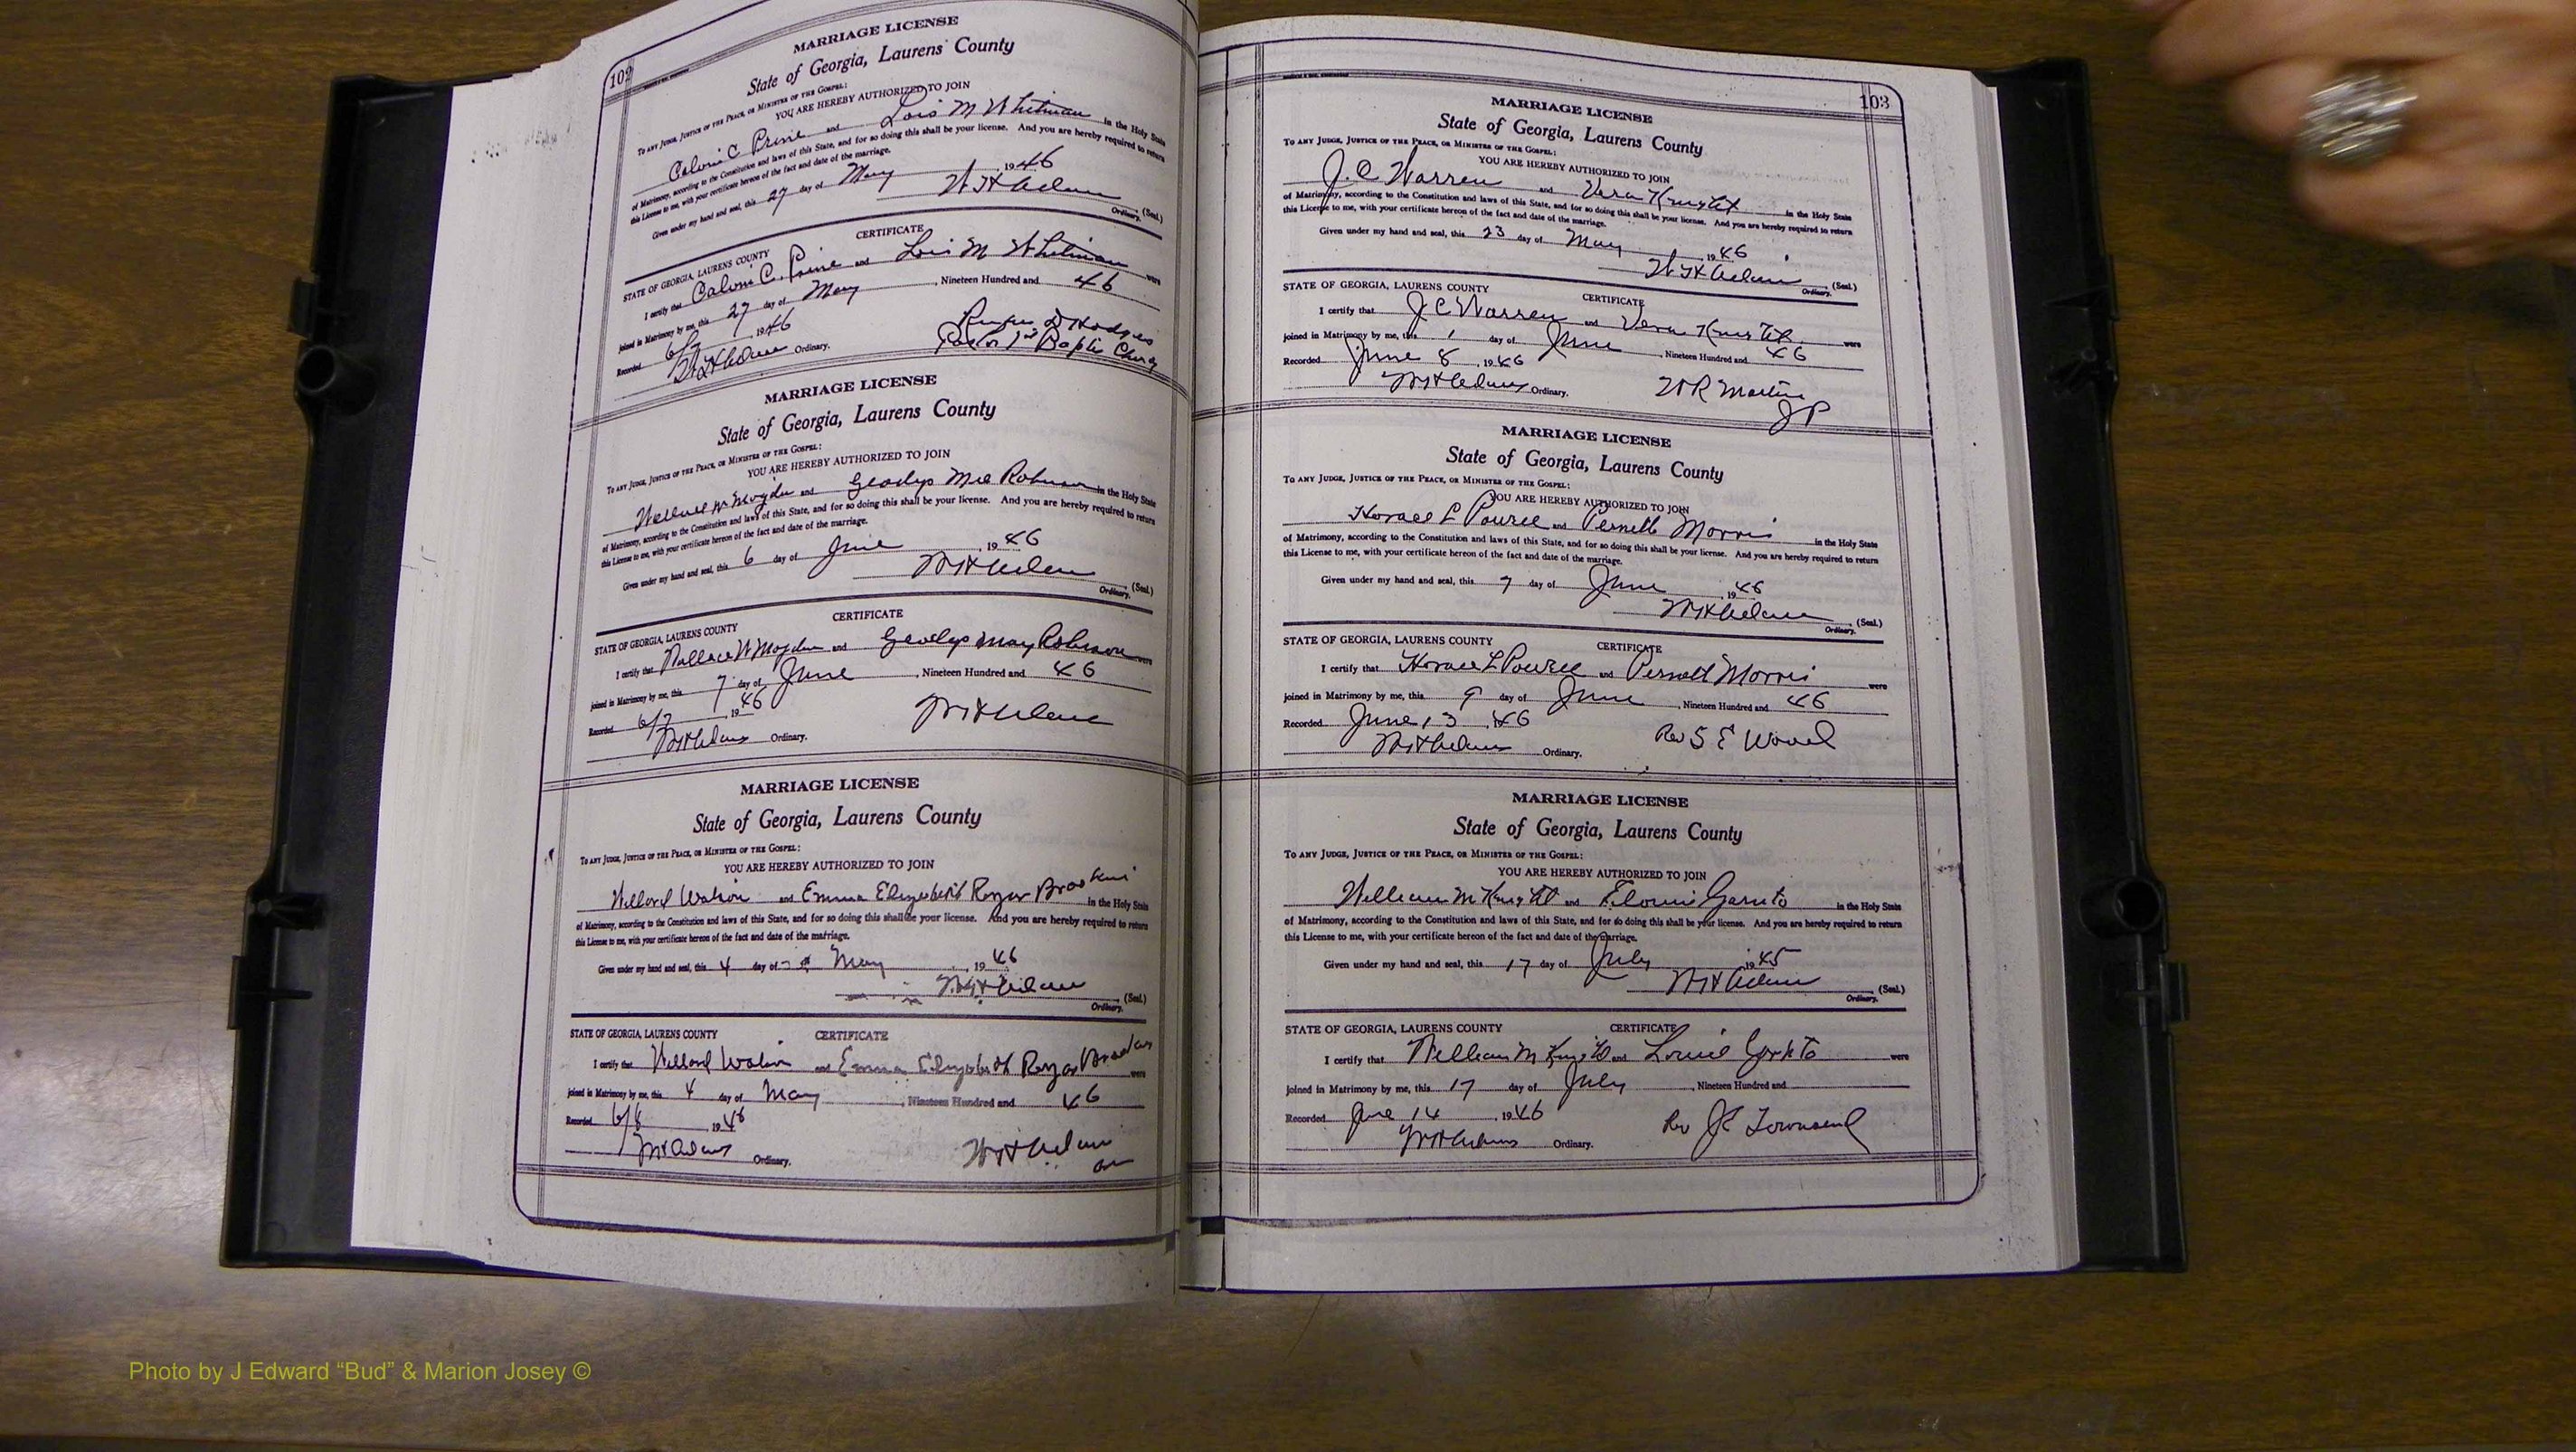 102
MARRIAGE LICENSE
State of Georgia, Laurens County
TO ANY JUDGE, JUSTICE OF THE PEACE, OR MINISTER OF THE GOSPEL:
YOU ARE HEREBY AUTHORIZED TO JOIN
Calvin C Prine and Lois M Whitman in the Holy State
of Matrimony, according to the Constitution and laws of this State, and for so doing this shall be your license. And you are hereby required to return
this License to me, with your certificate hereon of the fact and date of the marriage.
Given under my hand and seal, this 27 day of May 1946
W H Adams (Seal.)
Ordinary.
CERTIFICATE
STATE OF GEORGIA, LAURENS COUNTY
I certify that Calvin C. Prine and Lois M Whitman were
joined in Matrimony by me, this 27 day of May, Nineteen Hundred and 46
Recorded 6/7 1946 Rufus D Hodges
W H Adams Ordinary. Pastor 1st Baptis Church
MARRIAGE LICENSE
State of Georgia, Laurens County
TO ANY JUDGE, JUSTICE OF THE PEACE, OR MINISTER OF THE GOSPEL:
YOU ARE HEREBY AUTHORIZED TO JOIN
Wallace W and Gladys Mae Robinson in the Holy State
of Matrimony, according to the Constitution and laws of this State, and for so doing this shall be your license. And you are hereby required to return
this License to me, with your certificate hereon of the fact and date of the marriage.
Given under my hand and seal, this 6 day of June, 1946
W H Adams (Seal.)
Ordinary.
CERTIFICATE
STATE OF GEORGIA, LAURENS COUNTY
I certify that Wallace W and Gladys May Robinson were
joined in Matrimony by me, this 7 day of June, Nineteen Hundred and 46
Recorded 6/7, 1946 W H Adams
W H Adams Ordinary.
MARRIAGE LICENSE
State of Georgia, Laurens County
TO ANY JUDGE, JUSTICE OF THE PEACE, OR MINISTER OF THE GOSPEL:
YOU ARE HEREBY AUTHORIZED TO JOIN
Willard Watson and Emma Elizabeth Rozar in the Holy State
of Matrimony, according to the Constitution and laws of this State, and for so doing this shall be your license. And you are hereby required to return
this License to me, with your certificate hereon of the fact and date of the marriage.
Given under my hand and seal, this 4 day of May, 1946
W H Adams (Seal.)
Ordinary.
STATE OF GEORGIA, LAURENS COUNTY CERTIFICATE
I certify that Willard Watson and Emma Elizabeth Rozar were
joined in Matrimony by me, this 4 day of May, Nineteen Hundred and 46
Recorded 6/8, 1946
W H Adams Ordinary. W H Adams
103
MARRIAGE LICENSE
State of Georgia, Laurens County
TO ANY JUDGE, JUSTICE OF THE PEACE, OR MINISTER OF THE GOSPEL:
YOU ARE HEREBY AUTHORIZED TO JOIN
J. C Warren and Vera Knight in the Holy State
of Matrimony, according to the Constitution and laws of this State, and for so doing this shall be your license. And you are hereby required to return
this License to me, with your certificate hereon of the fact and date of the marriage.
Given under my hand and seal, this 23 day of May, 1946
W H Adams (Seal.)
Ordinary.
STATE OF GEORGIA, LAURENS COUNTY CERTIFICATE
I certify that J C Warren and Vera Knight were
joined in Matrimony by me, this 1 day of June, Nineteen Hundred and 46
Recorded June 8, 1946
W H Adams Ordinary. W R Martin
J P
MARRIAGE LICENSE
State of Georgia, Laurens County
TO ANY JUDGE, JUSTICE OF THE PEACE, OR MINISTER OF THE GOSPEL:
YOU ARE HEREBY AUTHORIZED TO JOIN
Horace L and Pernell Morris in the Holy State
of Matrimony, according to the Constitution and laws of this State, and for so doing this shall be your license. And you are hereby required to return
this License to me, with your certificate hereon of the fact and date of the marriage.
Given under my hand and seal, this 7 day of June, 1946
W H Adams (Seal.)
Ordinary.
STATE OF GEORGIA, LAURENS COUNTY CERTIFICATE
I certify that Horace L and Pernell Morris were
joined in Matrimony by me, this 9 day of June, Nineteen Hundred and 46
Recorded June 13, 46
W H Adams Ordinary. Rev S E Wood
MARRIAGE LICENSE
State of Georgia, Laurens County
TO ANY JUDGE, JUSTICE OF THE PEACE, OR MINISTER OF THE GOSPEL:
YOU ARE HEREBY AUTHORIZED TO JOIN
William M Knight and in the Holy State
of Matrimony, according to the Constitution and laws of this State, and for so doing this shall be your license. And you are hereby required to return
this License to me, with your certificate hereon of the fact and date of the marriage.
Given under my hand and seal, this 17 day of July, 1945
W H Adams (Seal.)
Ordinary.
STATE OF GEORGIA, LAURENS COUNTY CERTIFICATE
I certify that William M Knight and were
joined in Matrimony by me, this 17 day of July, Nineteen Hundred and
Recorded June 14, 1946
W H Adams Ordinary. Rev J E Townsend
Photo by J Edward “Bud” & Marion Josey ©